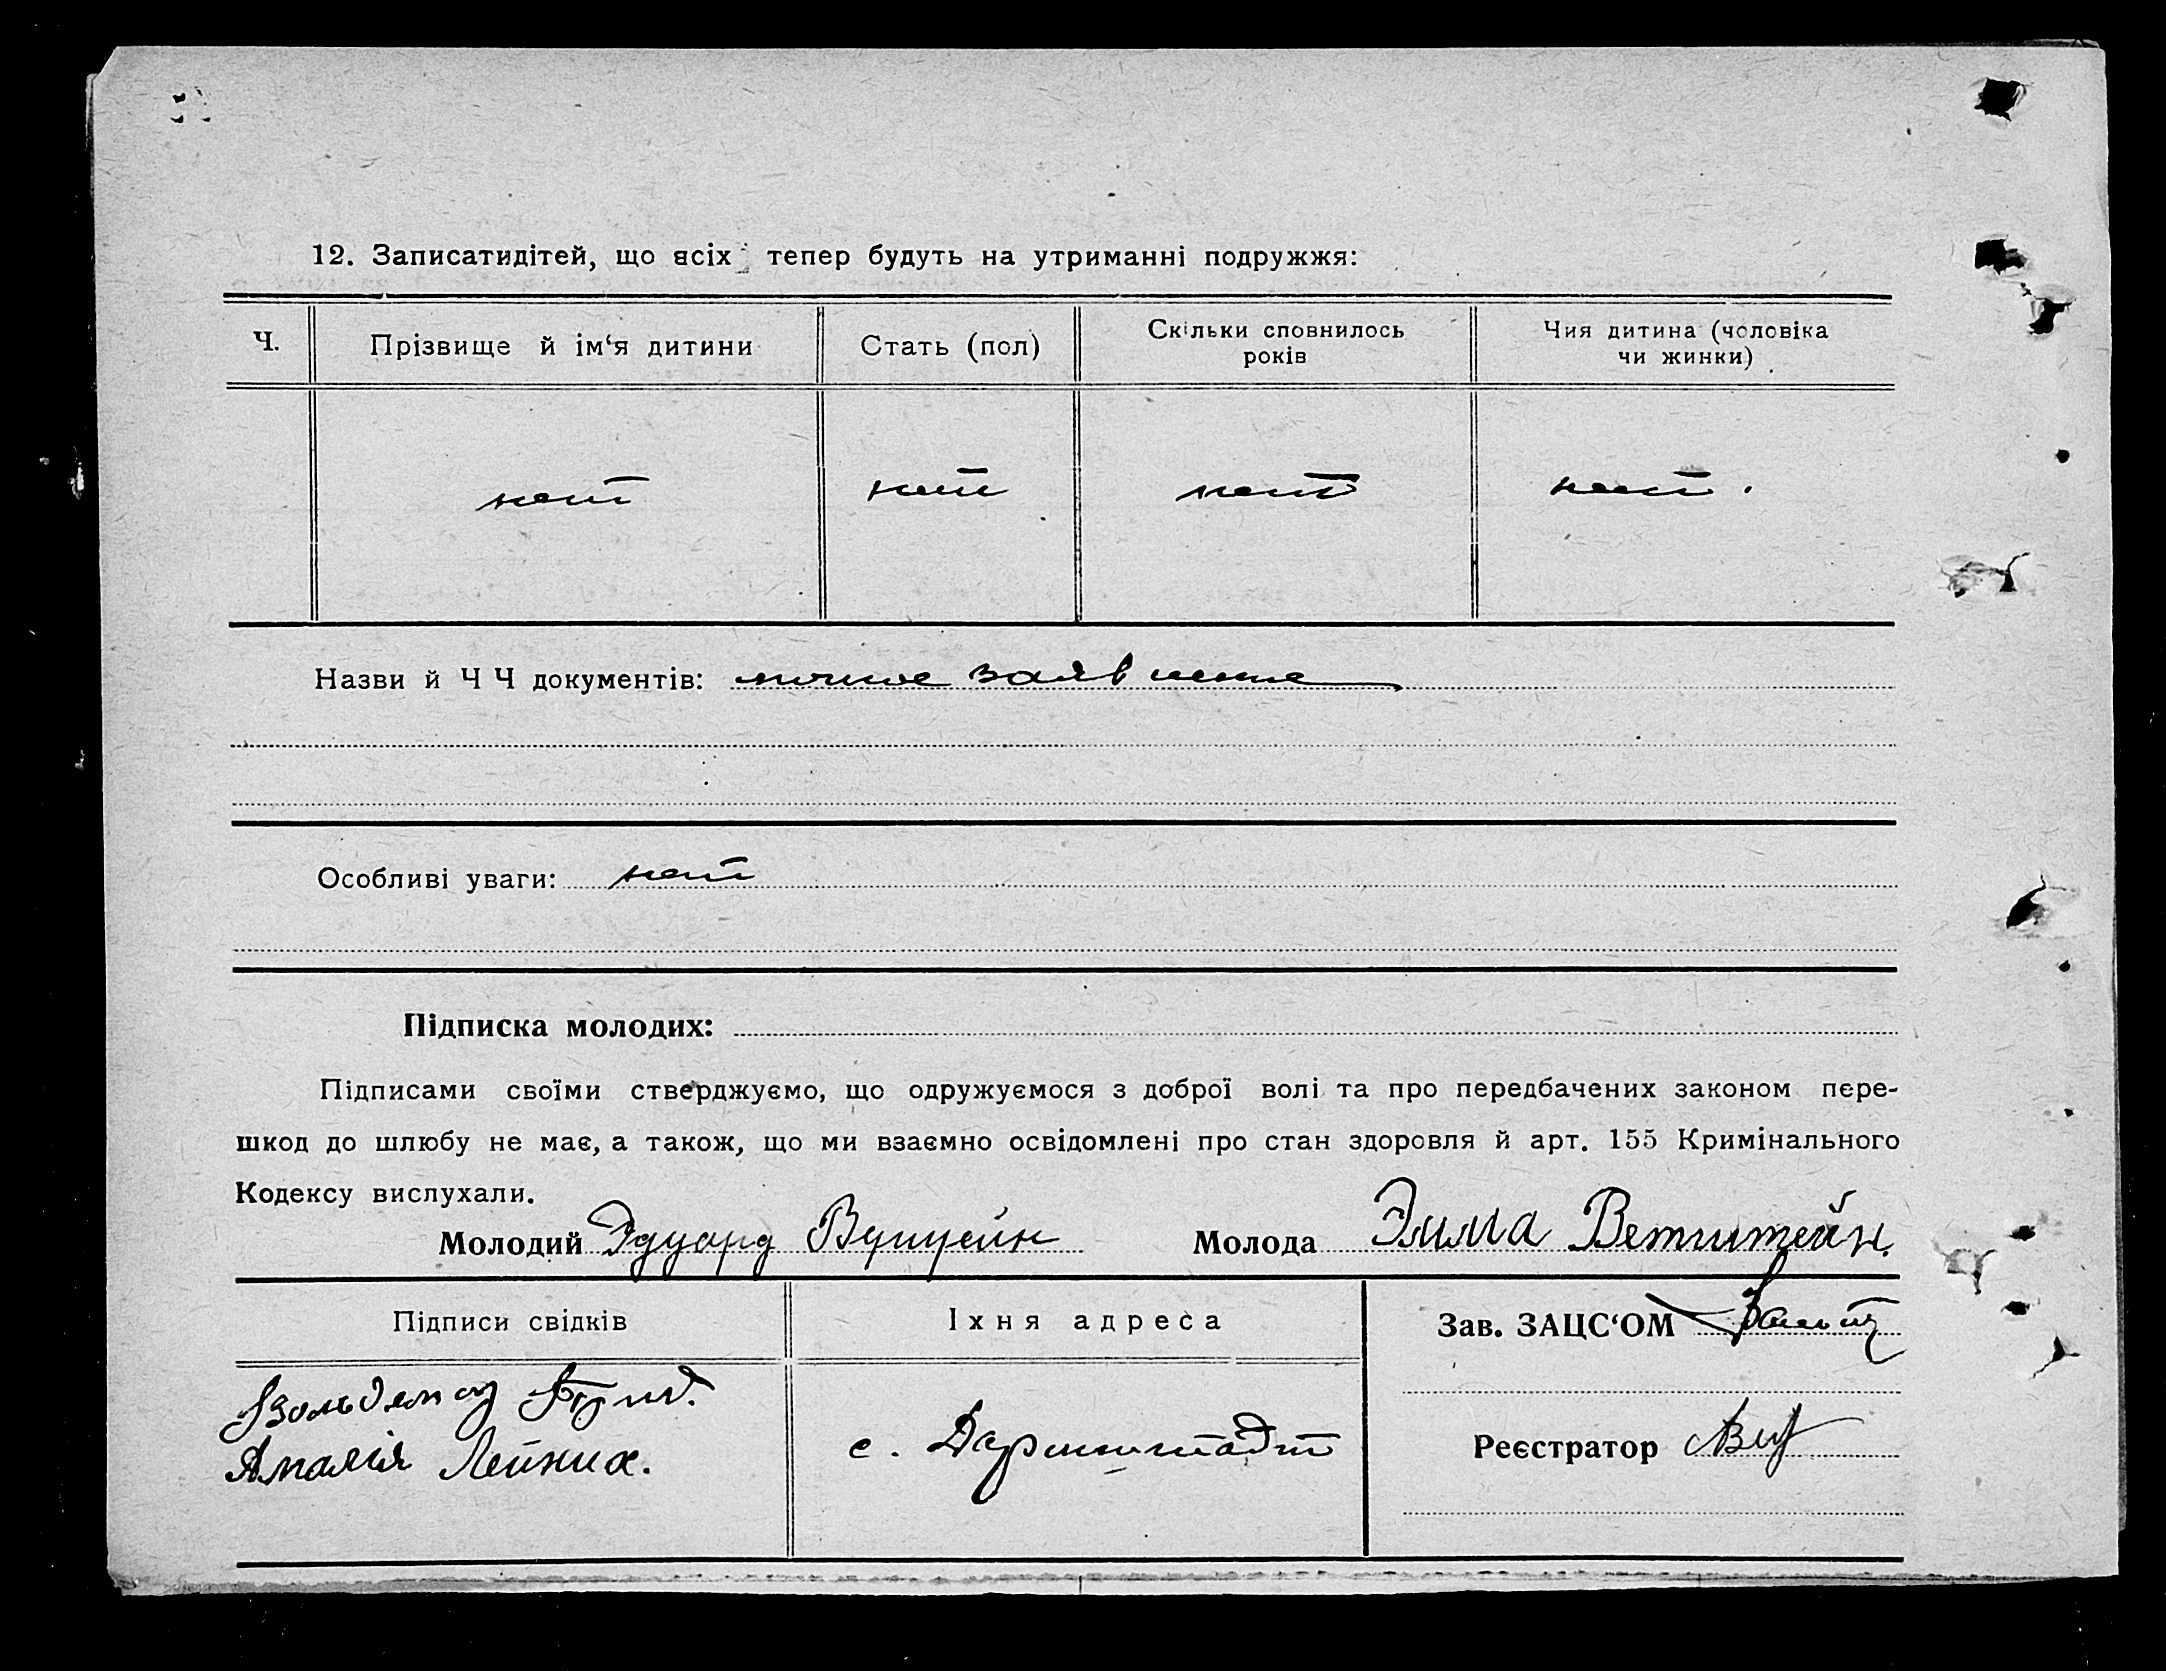 12. Записатидітей, що всіх тепер будуть на утриманні подружжя:
Ч.
Прізвище й ім‘я дитини
Стать (пол)
Скільки сповнилось
років
Чия дитина (чоловіка
чи жинки)
нет
нет
нет
нет.
Назви й Ч Ч документів: личное заявление
Особливі уваги: нет
Підписка молодих:
Підписами своїми стверджуємо, що одружуємося з доброї волі та про передбачених законом пере-
шкод до шлюбу не має, а також, що ми взаємно освідомлені про стан здоровля й арт. 155 Кримінального
Кодексу вислухали.
Молодий Эдуард
Молода Элма Ветштейн.
Підписи свідків
Їхня адреса
Зав. ЗАЦС‘ОМ
Вольдемар
Амалія Лейних.
с. Дармштадт
Реєстратор